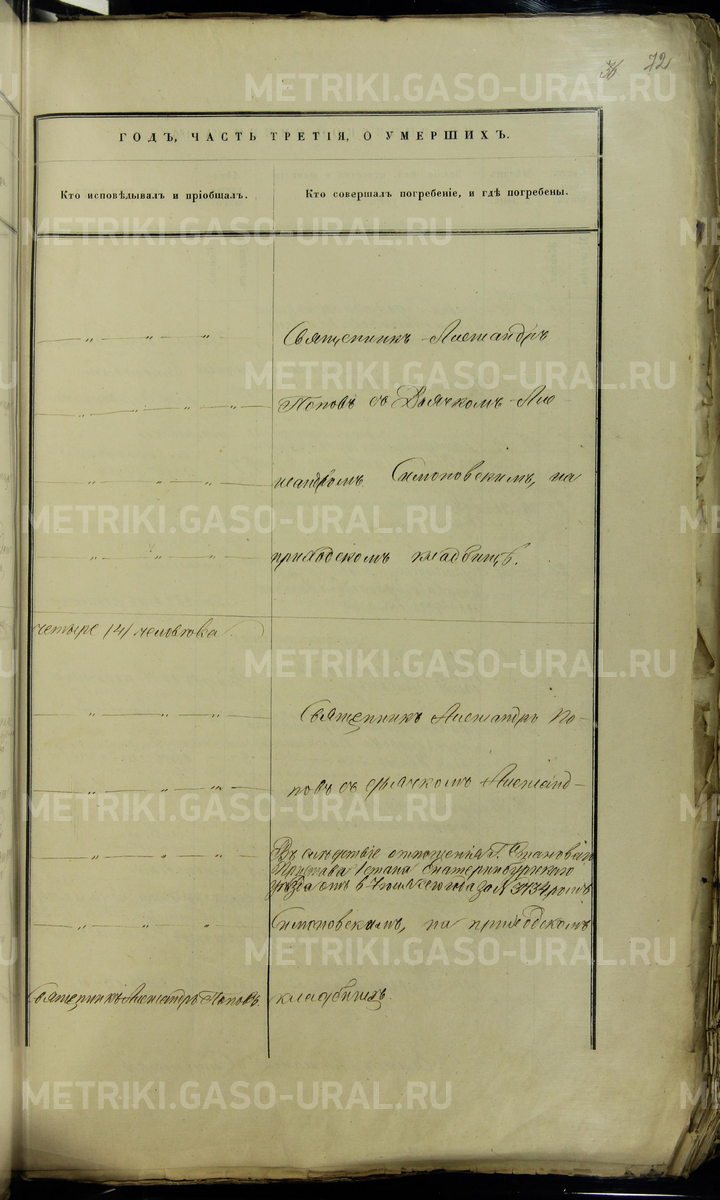 36 72
ГОДЪ, ЧАСТЬ ТРЕТІЯ, О УМЕРШИХЪ.
Кто исповѣдывалъ и пріобщалъ.
Кто совершалъ погребеніе, и гдѣ погребены.
Священникъ Александръ
Поповъ съ Дьячкомъ Але-
ксандромъ Симоновскимъ, на
приходскомъ кладбищѣ.
четыре /4/ человѣка.
Священникъ Александръ По-
повъ съ дьячкомъ Александ-
Въ слѣдствіе отношенія Г. Становаго
Пристава 1 стана Екатеринбургскаго
уѣзда отъ 6 сего года за № 3134 ромъ
Симоновскимъ, на приходскомъ
Священникъ Александръ Поповъ.
кладбищѣ.
METRIKI.GASO-URAL.RU